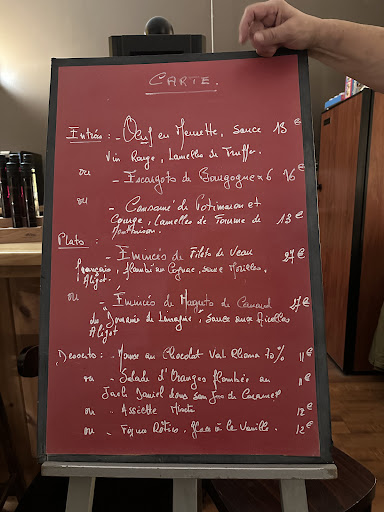 CARTE.
Entrées : - Oeuf en Meurette, sauce 13 €
Vin Rouge, Lamelles de Truffe.
ou - Escargots de Bourgogne x 6 16 €
ou - Consommé de Potimaron et
Courge, Lamelles de Tomme de 13 €
Plats : - Émincés de Filets de Veau 27 €
Français, flambé au Cognac, sauce Morilles.
Aligot.
ou - Émincés de Magrets de Canard 27 €
du Domaine de Limagne, sauce aux Girolles
Aligot
Desserts : - Mousse au Chocolat Valrhona 70% 11 €
ou - Salade d'Oranges flambée au 11 €
Jack Daniel dans son jus de Caramel
ou - Assiette Mixte 12 €
ou - Figues Rôties. Glace à la Vanille. 12 €